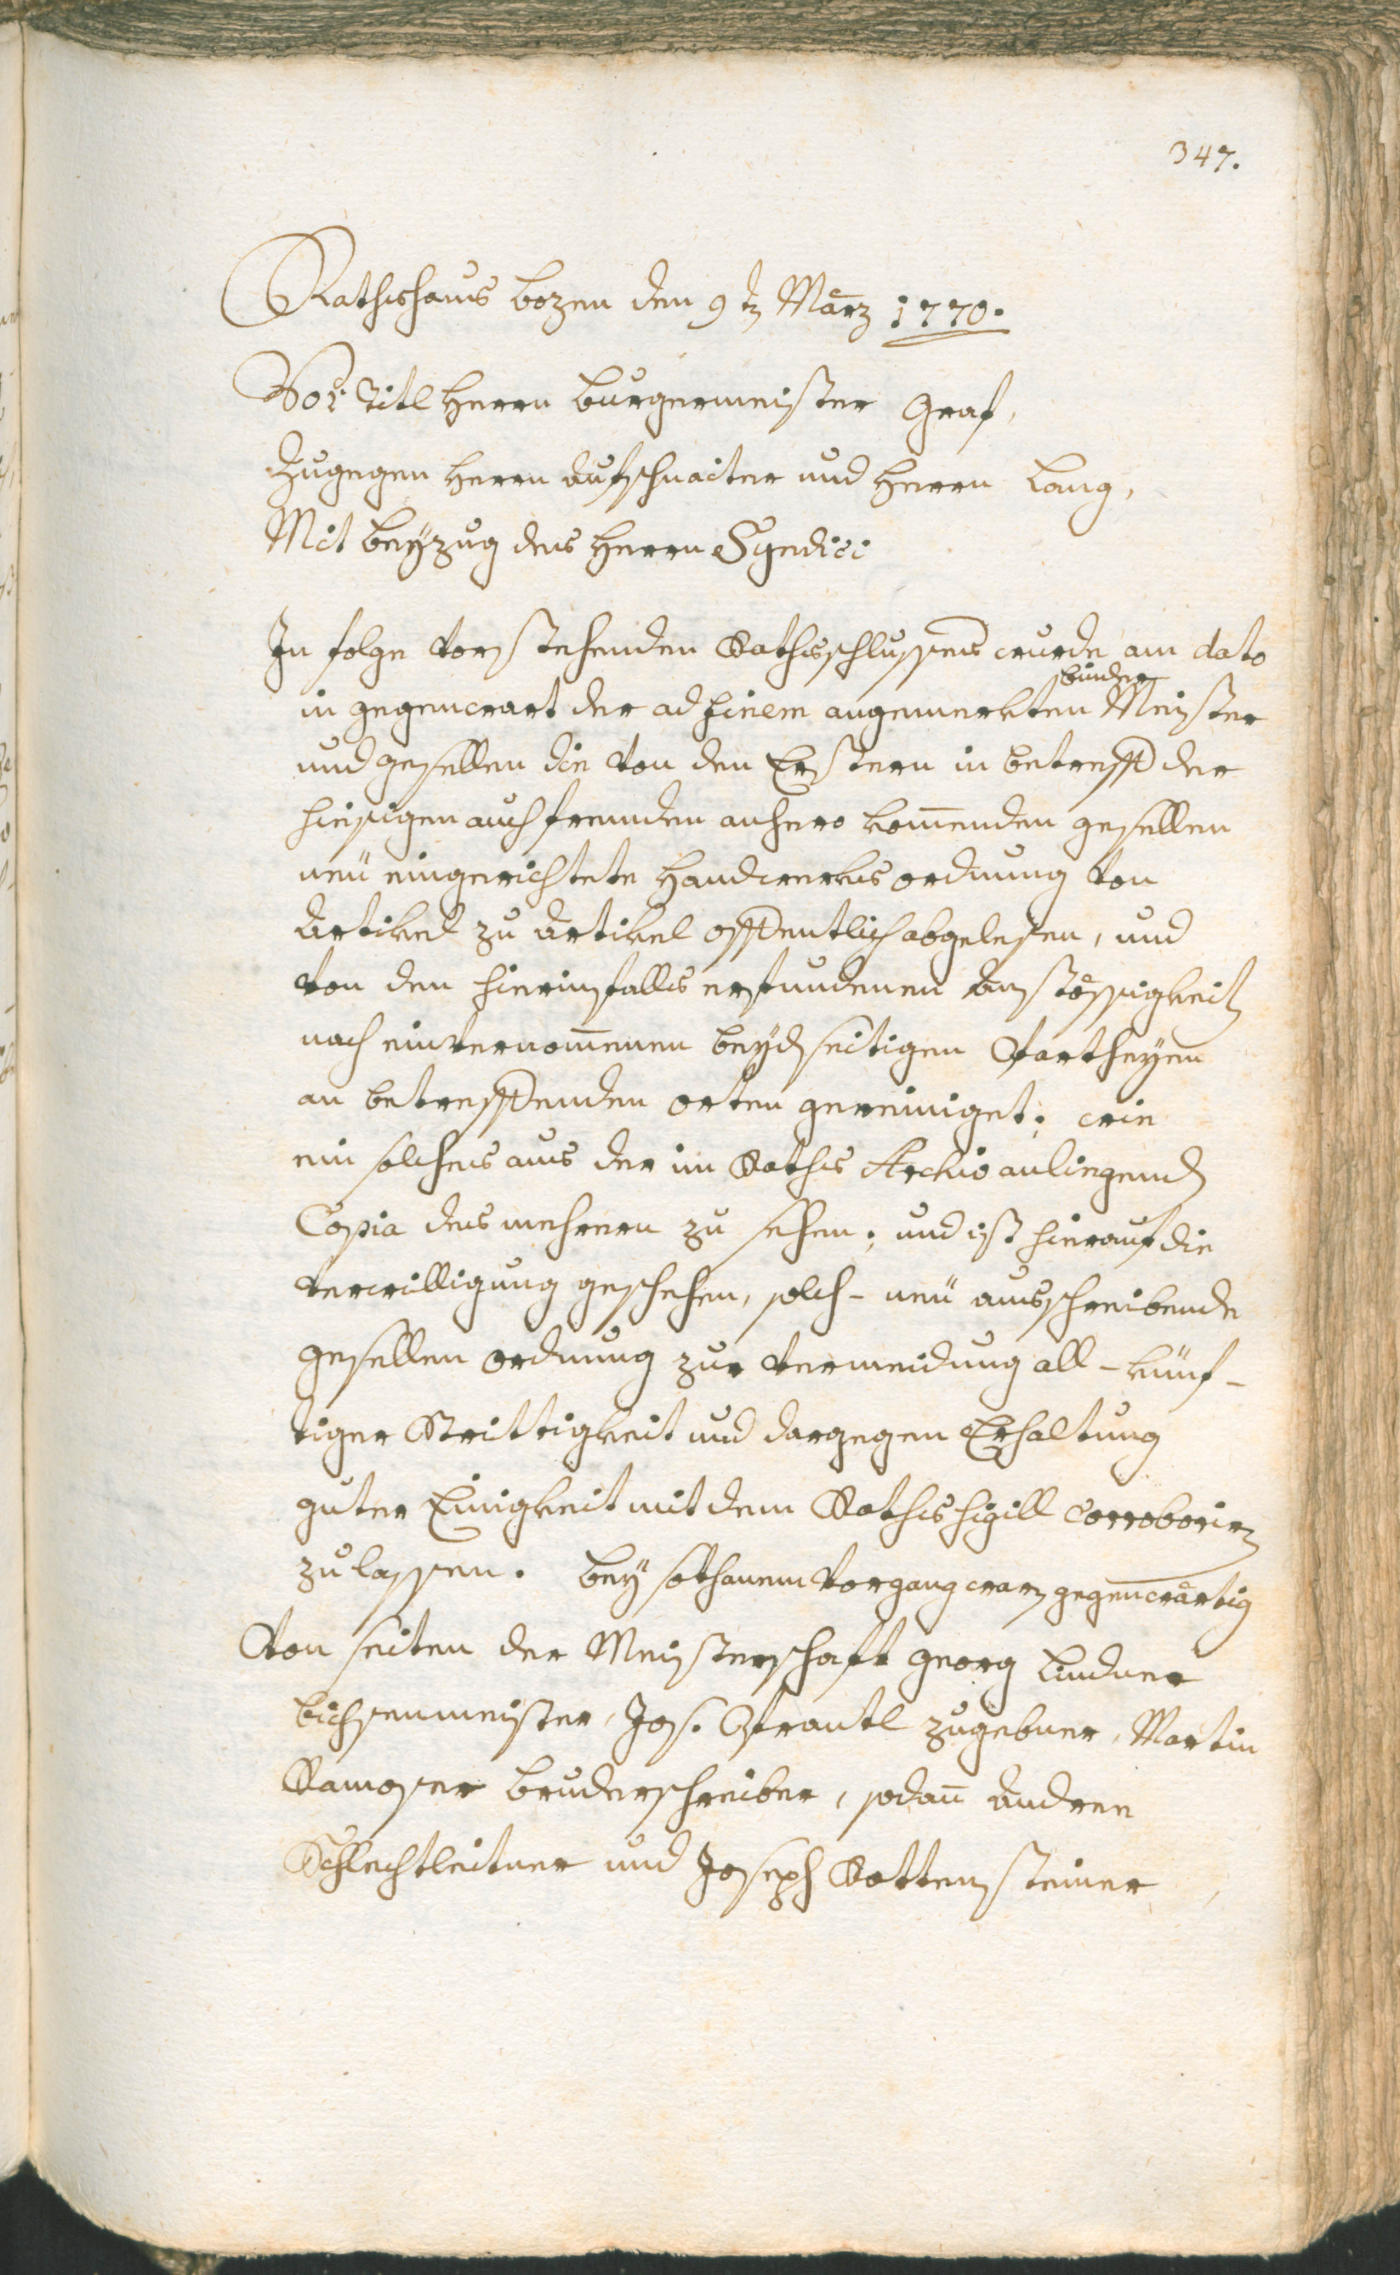 347.
Rathshaus Bozen den 9 tn März 1770.
Vor Titl Herrn Burgermeister Graf,
Zugegen Herrn Aufschnaiter und Herrn Lang,
Mit Beyzug des Herrn Syndici
In folge vorstehenden Rathsschlusses wurde am dato
Binder
in gegenwart der ad finem angemerkten Meister
und gesellen die von den Erstern in betreff der
hiesigen auch fremden anhero komenden gesellen
neü eingerichtete Handwerks ordnung von
Artikel zu Artikel offentlich abgelesen, und
von den hierinfalls erfundenen Anstössigkeitn
nach einvernomenen beydseitigen Partheyen
an betreffenden orten gereiniget; wie
ein solches aus der im Raths Archio anliegendn
Copia des mehrern zu sehen; und ist hierauf die
verwilligung geschehen, solch- neü ausschreibende
gesellen ordnung zur vermeidung all- künf-
tiger Strittigkeit und dargegen Erhaltung
guter Einigkeit mit dem Raths Sigill Corroboriern
zu lassen. Bey sothanem Vorgang warn gegenwärtig
Von seiten der Meisterschaft Georg Lindner
Bichsenmeister, Jos. Strantl zugebner, Martin
Ramoser Bruderschreiber, sodan Andree
Schlechtleitner und Joseph Rottensteiner,